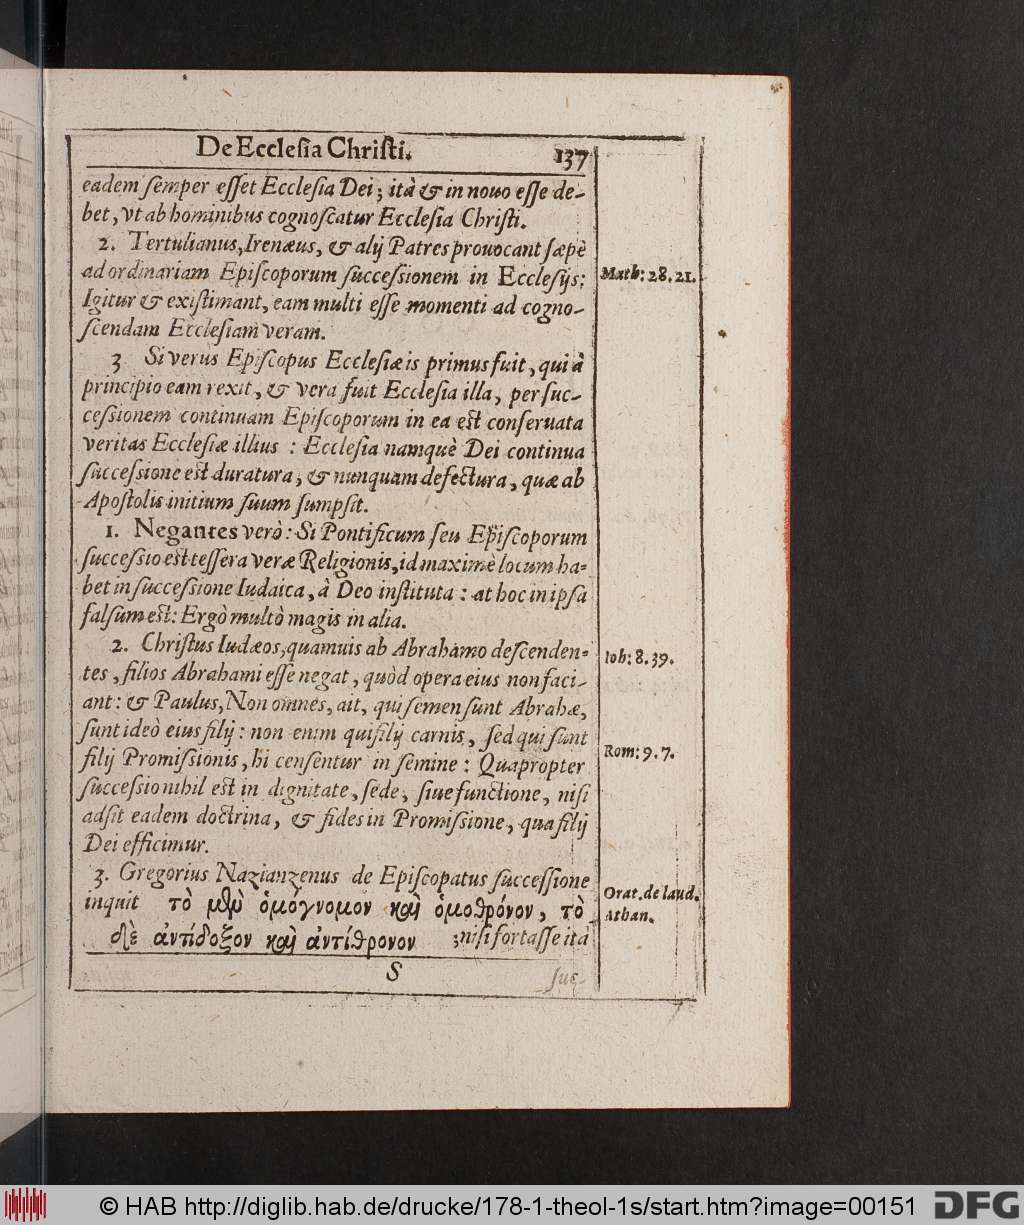 De Ecclesia Christi. 137
eadem semper esset Ecclesia Dei; itâ & in nouo esse de-
bet, vt ab hominibus cognoscatur Ecclesia Christi.
2. Tertulianus, Irenæus, & alij Patres prouocant sæpè
ad ordinariam Episcoporum successionem in Ecclesijs:
Igitur & existimant, eam multi esse momenti ad cogno-
scendam Ecclesiam veram.
3 Si verus Episcopus Ecclesiæ is primus fuit, qui à
principio eam rexit, & vera fuit Ecclesia illa, per suc-
cessionem continuam Episcoporum in ea est conseruata
veritas Ecclesiæ illius : Ecclesia namquè Dei continua
successione est duratura, & nunquam defectura, quæ ab
Apostolis initium suum sumpsit.
1. Negantes verò: Si Pontificum seu Episcoporum
successio est tessera veræ Religionis, id maximè locum ha-
bet in successione Iudaica, à Deo instituta : at hoc in ipsa
falsum est: Ergò multò magis in alia.
2. Christus Iudæos, quamuis ab Abrahamo descenden-
tes, filios Abrahami esse negat, quòd opera eius non faci-
ant: & Paulus, Non omnes, ait, qui semen sunt Abrahæ,
sunt ideò eius filij: non enim qui filij carnis, sed qui sunt
filij Promissionis, hi censentur in semine: Quapropter
successio nihil est in dignitate, sede, siue functione, nisi
adsit eadem doctrina, & fides in Promissione, qua filij
Dei efficimur.
3. Gregorius Nazianzenus de Episcopatus successione
inquit τὸ μὲν ὁμόγνομον καὶ ὁμοθρόνον, τὸ
δὲ ἀντίδοξον καὶ ἀντίθρονον ; nisi fortasse itâ
S suc-
Math: 28. 21.
Ioh: 8. 39.
Rom: 9. 7.
Orat. de laud.
Athan.
© HAB http://diglib.hab.de/drucke/178-1-theol-1s/start.htm?image=00151 DFG